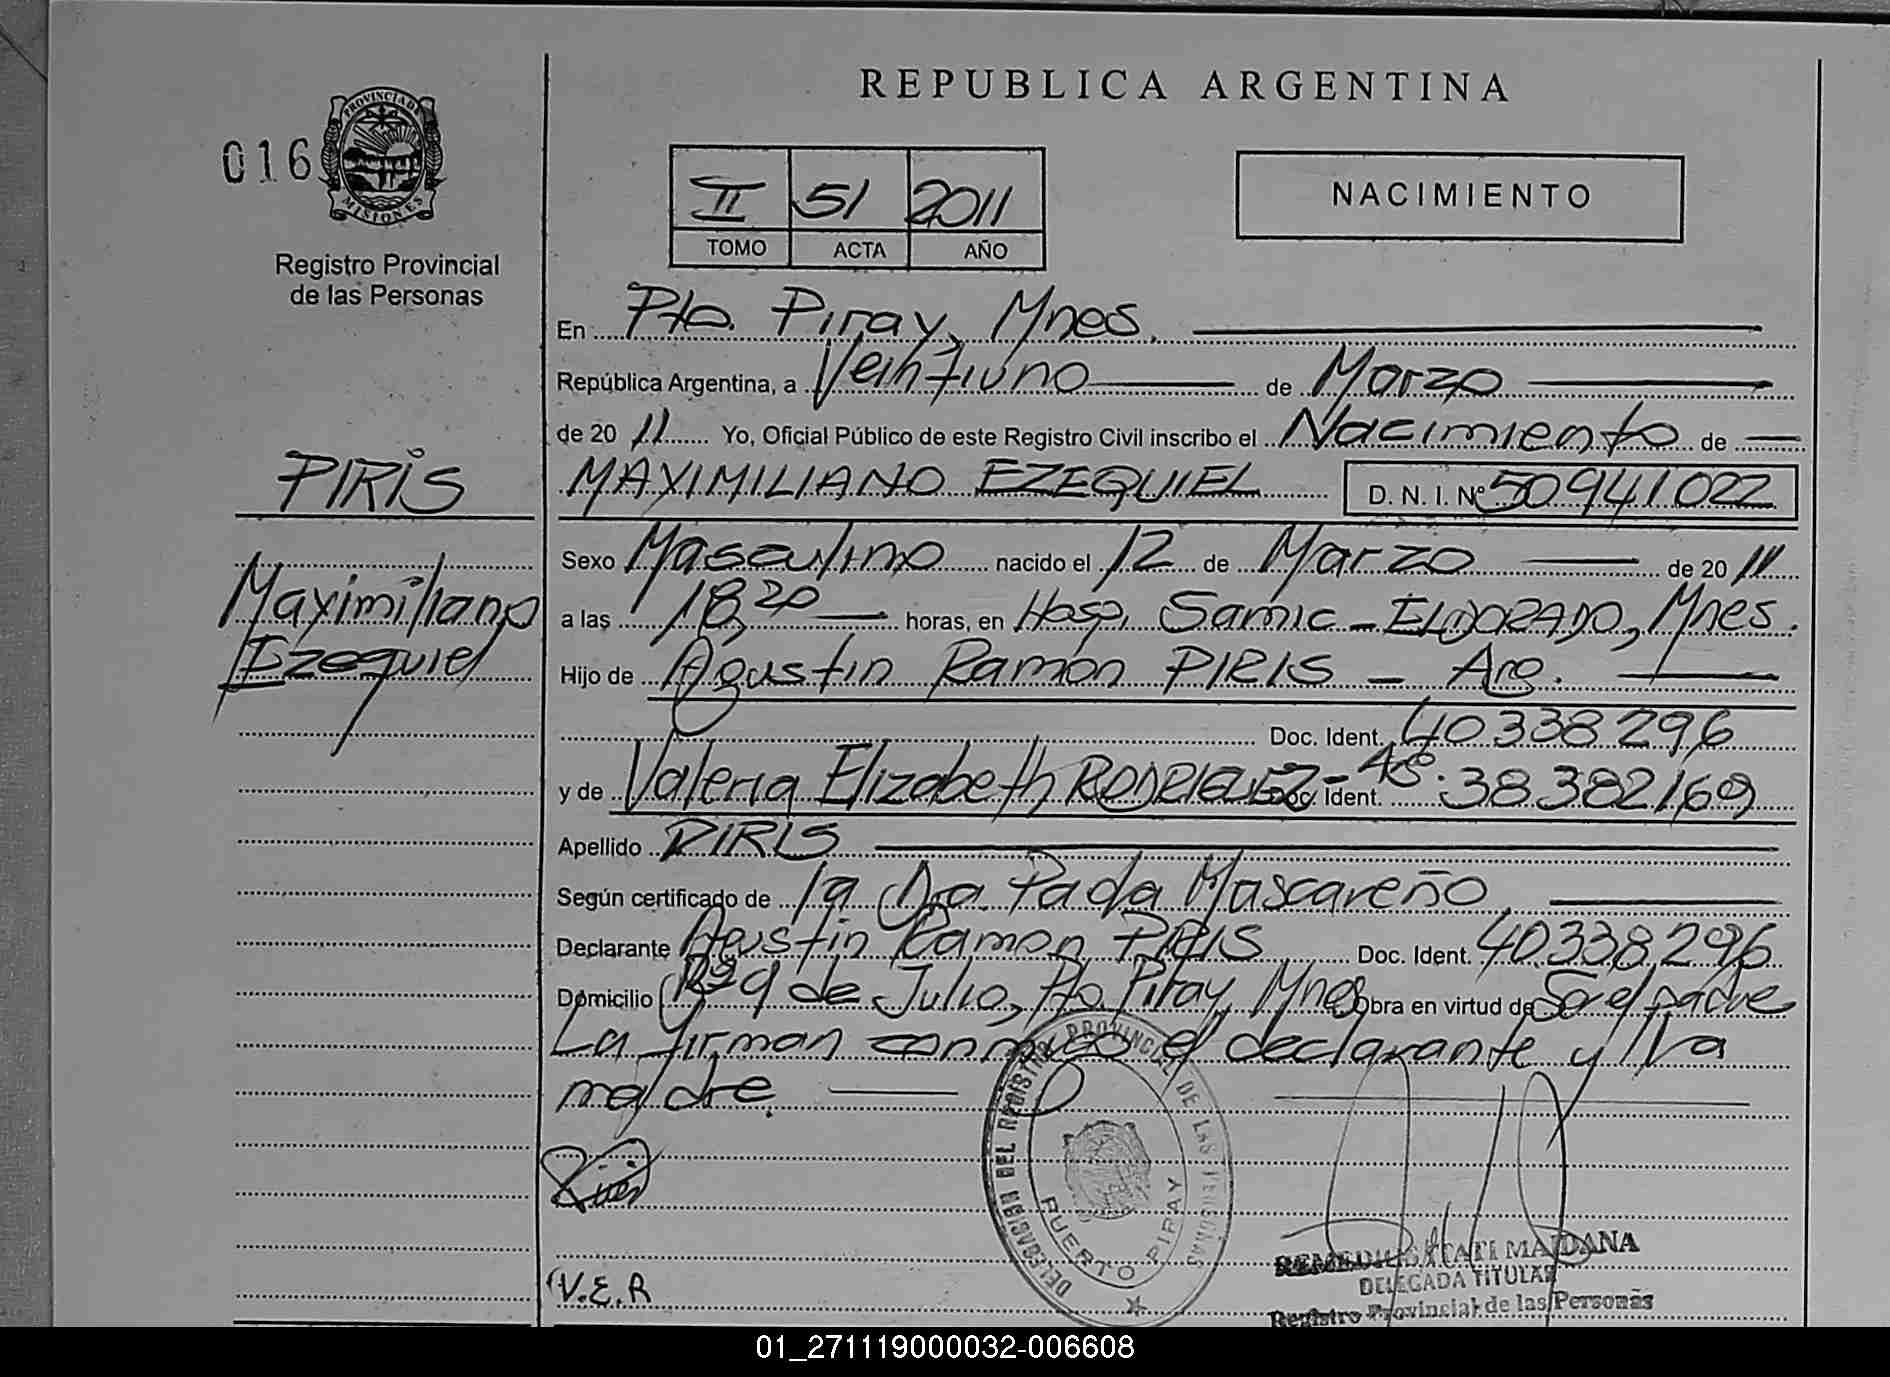 REPUBLICA ARGENTINA
016
PROVINCIA DE
MISIONES
Registro Provincial
de las Personas
II 51 2011
TOMO ACTA AÑO
NACIMIENTO
En Pto. Piray, Mnes.
República Argentina, a Veintiuno de Marzo
de 20 11 Yo, Oficial Público de este Registro Civil inscribo el Nacimiento de
PIRIS
Maximiliano
Ezequiel
MAXIMILIANO EZEQUIEL D. N. I. Nº 50941022
Sexo Masculino nacido el 12 de Marzo de 20 11
a las 18,20 horas, en Hosp. Samic - ELDORADO, Mnes.
Hijo de Agustin Ramón PIRIS - Arg.
Doc. Ident. 40338296
y de Valeria Elizabeth RODRIGUEZ - Arg. Doc. Ident. 38382169
Apellido PIRIS
Según certificado de la Dra. Mascareño
Declarante Agustin Ramon PIRIS Doc. Ident. 40338296
Domicilio 9 de Julio, Pto. Piray, Mnes Obra en virtud de Ser el padre
La firman conmigo el declarante y la
madre.
DELEGACION DEL REGISTRO PROVINCIAL DE LAS PERSONAS
PUERTO PIRAY
V.E.R
MAIDANA
DELEGADA TITULAR
Registro Provincial de las Personas
01_271119000032-006608